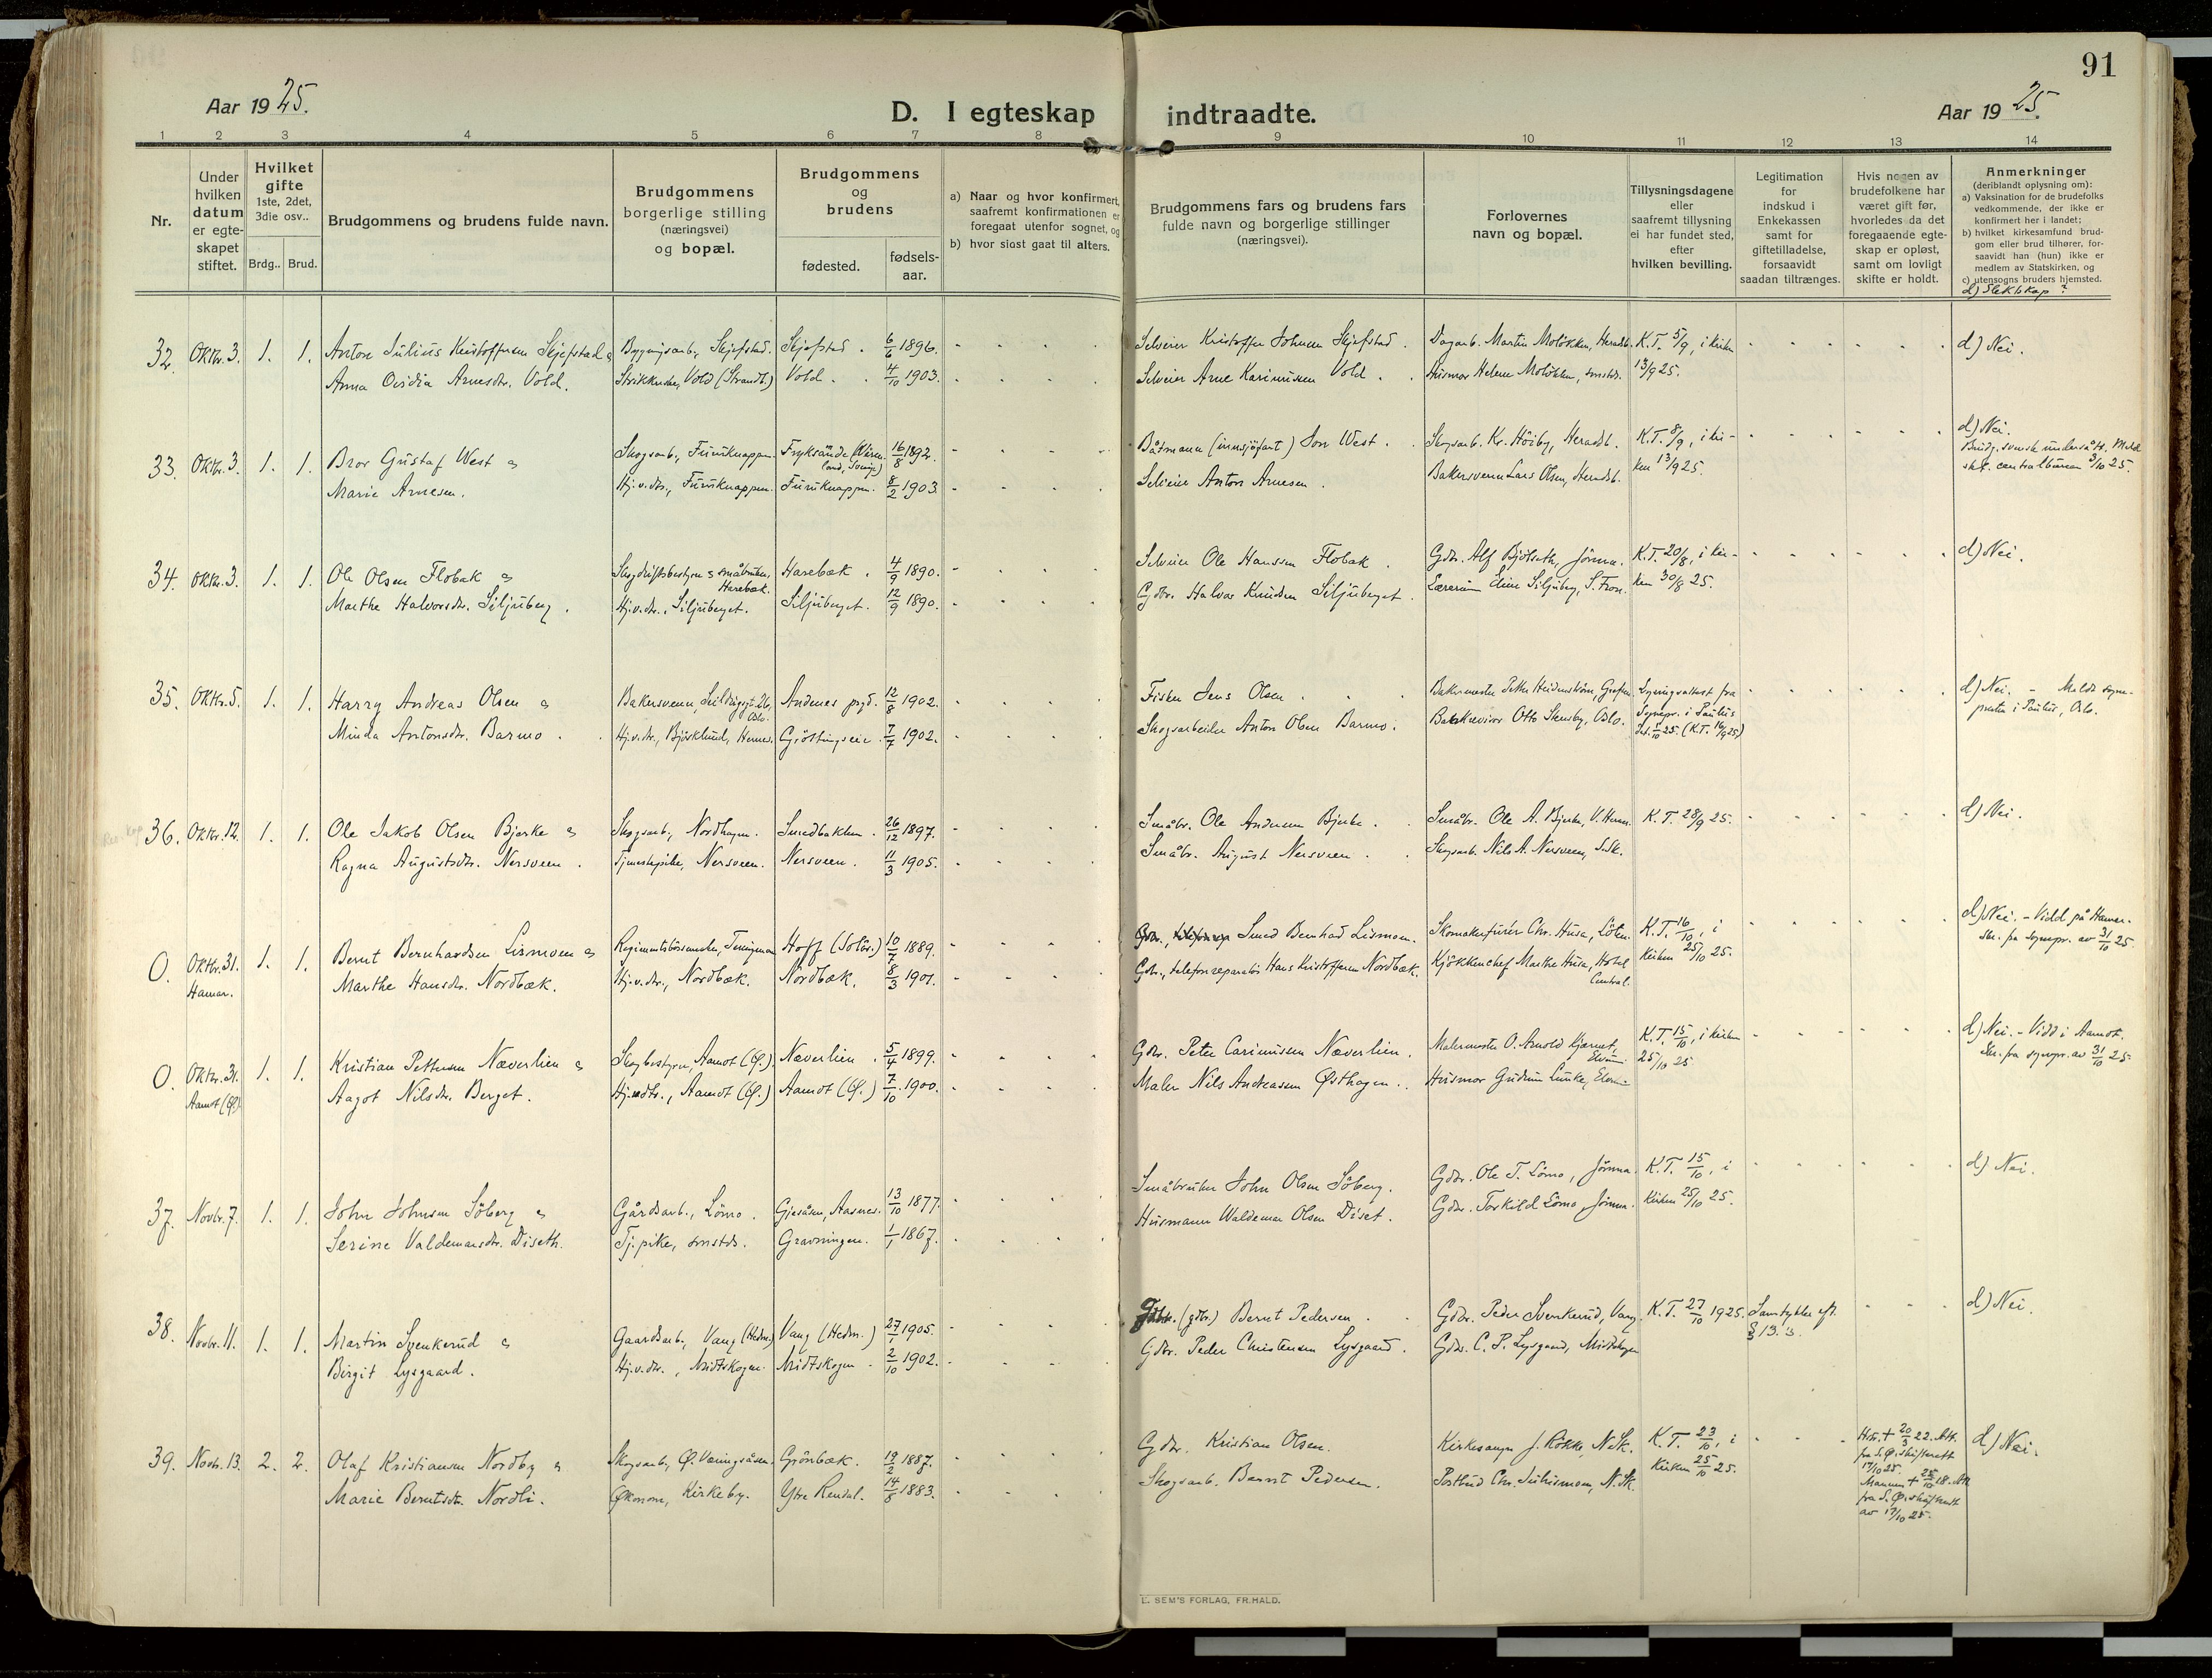 91
Aar 1925.
D. I egteskap indtraadte.
Aar 1925.
1 2 3 4 5 6 7 8 9 10 11 12 13 14
Nr.
Under hvilken datum er egteskapet stiftet.
Hvilket gifte 1ste, 2det, 3die osv..
Brdg.. Brud.
Brudgommens og brudens fulde navn.
Brudgommens borgerlige stilling (næringsvei) og bopæl.
Brudgommens og brudens
fødested.
fødselsaar.
a) Naar og hvor konfirmert, saafremt konfirmationen er foregaat utenfor sognet, og
b) hvor sidst gaat til alters.
Brudgommens fars og brudens fars fulde navn og borgerlige stillinger (næringsvei).
Forlovernes navn og bopæl.
Tillysningsdagene eller saafremt tillysning ei har fundet sted, efter hvilken bevilling.
Legitimation for indskud i Enkekassen samt for giftetilladelse, forsaavidt saadan tiltrænges.
Hvis nogen av brudefolkene har været gift før, hvorledes da det foregaaende egteskap er opløst, samt om lovligt skifte er holdt.
Anmerkninger (deriblandt oplysning om):
a) Vaksination for de brudefolks vedkommende, der ikke er konfirmert her i landet;
b) hvilket kirkesamfund brudgom eller brud tilhører, forsaavidt han (hun) ikke er medlem av Statskirken, og
c) utensogns bruders hjemsted.
d) Slektskap?
32. Oktbr. 3. 1. 1. Anton Julius Kristoffersen Skjefstad & Bygningsarb., Skjefstad. Skjefstad. 6/6 1896. Selveier Kristoffer Johnsen Skjefstad. Dagarb. Martin Moløkken, Heradsb. K.T. 5/9, i kirken d) Nei.
Anna Ovidia Arnesdtr. Vold. Strikkerske, Vold (Strandb.) Vold. 4/10 1903. Selveier Arne Karinussen Vold. Husmor Helene Moløkken, smstds. 13/9 25.
33. Oktbr. 3. 1. 1. Bror Gustaf West & Skogsarb., Furuknappen. Fryksände (Värmland, Sverige) 16/8 1892. Båtmann (innsjöfart) Jon West. Skogsarb. Kr. Höiby, Heradsb. K.T. 8/9, i kir- d) Nei.
Brudg. svensk undersått. Meld.
st. centralbureau 3/10 25.
Marie Arnesen. Hj.v.dtr., Furuknappen. Furuknappen. 8/2 1903. Selveier Anton Arnesen. Bakersvenn Lars Olsen, Heradsb. ken 13/9 25.
34. Oktbr. 3. 1. 1. Ole Olsen Flobak & Skogdriftsbestyrer & småbruker, Harebæk. Harebæk. 4/9 1890. Selveier Ole Hanssen Flobak. Gdbr. Alf Bjölseth, Jömna. K.T. 20/8, i kir- d) Nei.
Marthe Halvorsdtr. Siljuberg. Hj.v.dtr., Siljuberget. Siljuberget. 12/9 1890. Gdbr. Halvor Knudsen Siljuberget. Lærerinne Eline Siljuberg, S. Fron. ken 30/8 25.
35. Oktbr. 5. 1. 1. Harry Andreas Olsen & Bakersvenn, Oslo. Andenes prgd. 12/8 1902. Fisker Jens Olsen. Bakermester Petter Heidenström, Lysningsattest fra d) Nei. - Meldt sogne-
presten i Paulus, Oslo.
Minda Antonsdtr. Barmo. Hj.v.dtr., Björklund, Hernes. Gjöltingseie. 7/7 1902. Skogsarbeider Anton Olsen Barmo. Otto Stensby, Oslo. Sognepr. i Paulus
dat. 1/10 25. (K.T. 16/9 25)
36. Oktbr. 12. 1. 1. Ole Jakob Olsen Bjerke & Skogsarb., Nordhagen. Smedbakken. 26/12 1897. Småbr. Ole Andersen Bjerke. Småbr. Ole A. Bjerke, V. Hernes. K.T. 28/9 25. d) Nei.
Ragna Augustsdtr. Nersveen. Tjenestepike, Nersveen. Nersveen. 11/3 1905. Småbr. August Nersveen. Skogsarb. Nils A. Nersveen, S.Sk.
0. Oktbr. 31. Hamar. 1. 1. Bernt Bernhardsen Lismoen & Regimentsbörsemaker, Terningmoen Hoff (Solör.) 10/7 1889. Smed Bernhard Lismoen. Skomakerfurér Chr. Husa, Löten. K.T. 16/10, i d) Nei. - Vidd på Hamar.
Skr. fra sognepr. av 31/10 25.
Marthe Hansdtr. Nordbæk. Hj.v.dtr., Nordbæk. Nordbæk. 8/3 1901. Gdbr., telefonreparatör Hans Kristoffersen Nordbæk. Kjökkenchef Marthe Husa, Hotel Central. kirken 25/10 25.
0. Oktbr. 31. Aamot (Ø.) 1. 1. Kristian Pettersen Næverlien & Skogbestyrer, Aamot (Ø.) Næverlien. 5/4 1899. Gdbr. Peter Carinussen Næverlien. Malermester O. Arnold Kjærnet, Elverum K.T. 15/10, i kirken d) Nei. - Vidd i Aamot.
Skr. fra sognepr. av 31/10 25
Aagot Nilsdtr. Berget. Hj.v.dtr., Aamot (Ø.) Aamot (Ø.) 7/10 1900. Maler Nils Andreassen Østhagen. Husmor Gudrun Lunke, Elverum 25/10 25
37. Novbr. 7. 1. 1. John Johnsen Söberg & Gårdsarb., Lömo. Gjesåsen, Aasnes. 13/10 1877. Småbruker John Olsen Söberg. Gdbr. Ole T. Lömo, Jömna. K.T. 15/10, i d) Nei.
Serine Valdemarsdtr. Diseth. Tj.pike, smstds. Gravningen. 1/1 1867. Husmann Waldemar Olsen Diset. Gdbr. Torkild Lömo, Jömna. kirken 25/10 25.
38. Novbr. 11. 1. 1. Martin Svenkerud & Gaardsarb., Vang (Hedm.) Vang (Hedm.) 27/1 1905. (gdbr.) Bernt Pedersen. Gdbr. Peder Svenkerud, Vang. K.T. 27/10 1925. Samtykke eft. § 13. d) Nei.
Birgit Lysgaard. Hj.v.dtr., Midtskogen. Midtskogen. 2/10 1902. Gdbr. Peder Christensen Lysgaard. Gdbr. C. P. Lysgaard, Midtskogen
39. Novbr. 13. 2. 2. Olaf Kristiansen Nordby & Skogsarb., Ø. Væringsåsen. Grönbæk. 19/2 1887. Gdbr. Kristian Olsen. Kirkesanger J. Hökke, N.Sk. K.T. 23/10, i Hstr. † 20/3 22. Att.
fra S.Ø. skifterett
17/10 25.
Mannen † 25/10 18. Att.
fra S.Ø. skifterett
av 17/10 25. d) Nei.
Marie Berntsdtr. Nordli. Økonom, Kirkeby. Ytre Rendal. 14/8 1883. Skogsarb. Bernt Pedersen. Postbud Chr. Julusmoen, N.Sk. kirken 25/10 25.
E. SEM'S FORLAG, FR.HALD.